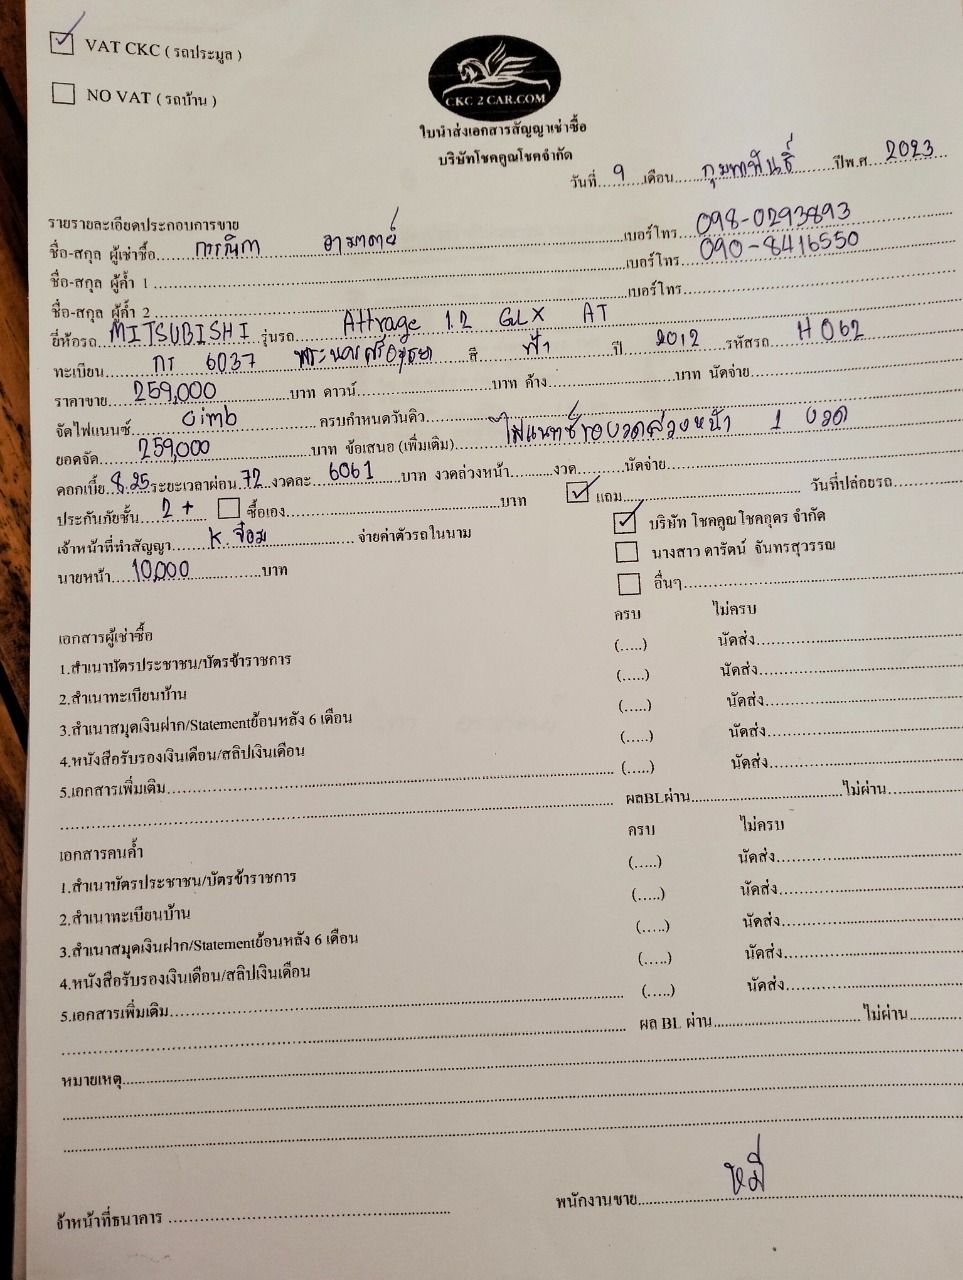 VAT CKC ( รถประมูล )
NO VAT ( รถบ้าน )
CKC 2 CAR.COM
ใบนำส่งเอกสารสัญญาเช่าซื้อ
บริษัทโชคคูณโชคจำกัด
วันที่ 9 เดือน กุมภาพันธ์ ปีพ.ศ. 2023
รายรายละเอียดประกอบการขาย
ชื่อ-สกุล ผู้เช่าซื้อ กรรณิกา เบอร์โทร 098-0293893
ชื่อ-สกุล ผู้ค้ำ 1 เบอร์โทร 090-8416550
ชื่อ-สกุล ผู้ค้ำ 2 เบอร์โทร
ยี่ห้อรถ MITSUBISHI รุ่นรถ Attrage 1.2 GLX AT
ทะเบียน กร 6037 พระนครศรีอยุธยา สี ฟ้า ปี 2012 รหัสรถ H 062
ราคาขาย 259,000 บาท ดาวน์ บาท ค้าง บาท นัดจ่าย
จัดไฟแนนซ์ cimb ครบกำหนดวันคิว
ยอดจัด 259,000 บาท ข้อเสนอ (เพิ่มเติม) ไฟแนทซ์ขอ งวดล่วงหน้า 1 งวด
ดอกเบี้ย 8.25 ระยะเวลาผ่อน 72 งวดละ 6061 บาท งวดล่วงหน้า งวด นัดจ่าย
ประกันภัยชั้น 2 + ซื้อเอง บาท แถม วันที่ปล่อยรถ
เจ้าหน้าที่ทำสัญญา K. จ๋อม จ่ายค่าตัวรถในนาม บริษัท โชคคูณโชคอุดร จำกัด
นางสาว ดารัตน์ จันทรสุวรรณ
นายหน้า 10,000 บาท อื่นๆ
เอกสารผู้เช่าซื้อ ครบ ไม่ครบ
1.สำเนาบัตรประชาชน/บัตรข้าราชการ (.....) นัดส่ง
2.สำเนาทะเบียนบ้าน (.....) นัดส่ง
3.สำเนาสมุดเงินฝาก/Statementย้อนหลัง 6 เดือน (.....) นัดส่ง
4.หนังสือรับรองเงินเดือน/สลิปเงินเดือน (.....) นัดส่ง
5.เอกสารเพิ่มเติม (.....) นัดส่ง
ผลBLผ่าน ไม่ผ่าน
เอกสารคนค้ำ ครบ ไม่ครบ
1.สำเนาบัตรประชาชน/บัตรข้าราชการ (.....) นัดส่ง
2.สำเนาทะเบียนบ้าน (.....) นัดส่ง
3.สำเนาสมุดเงินฝาก/Statementย้อนหลัง 6 เดือน (.....) นัดส่ง
4.หนังสือรับรองเงินเดือน/สลิปเงินเดือน (.....) นัดส่ง
5.เอกสารเพิ่มเติม (.....) นัดส่ง
ผล BL ผ่าน ไม่ผ่าน
หมายเหตุ
จ้าหน้าที่ธนาคาร พนักงานขาย หมี